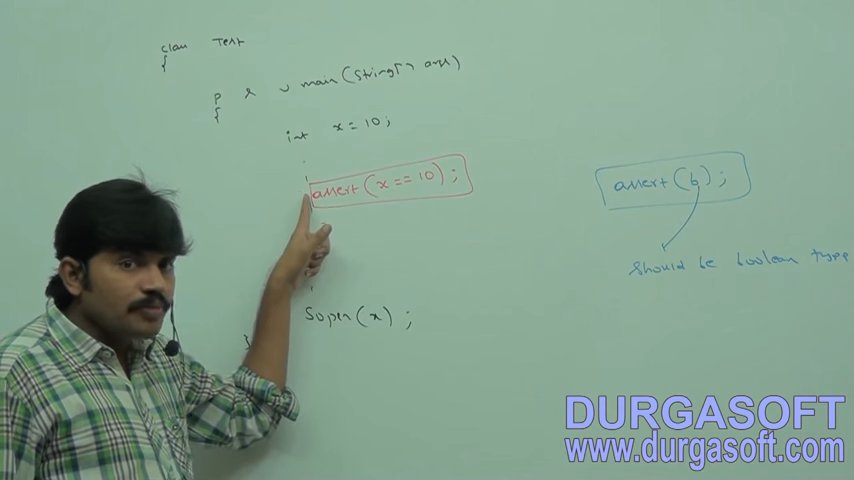 class Test
{
p s v main(String[] args)
{
int x = 10;
.
.
assert(x == 10);
Sopen(x);
}
assert(b);
should be boolean type
DURGASOFT
www.durgasoft.com